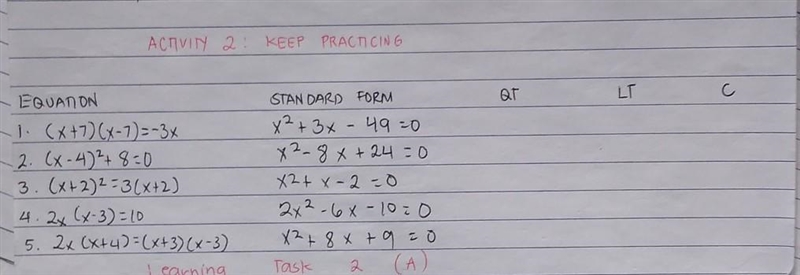 ACTIVITY 2: KEEP PRACTICING
EQUATION STANDARD FORM QT LT C
1. (x+7)(x-7)=-3x x²+3x-49=0
2. (x-4)²+8=0 x²-8x+24=0
3. (x+2)²=3(x+2) x²+x-2=0
4. 2x(x-3)=10 2x²-6x-10=0
5. 2x(x+4)=(x+3)(x-3) x²+8x+9=0
Learning Task 2 (A)